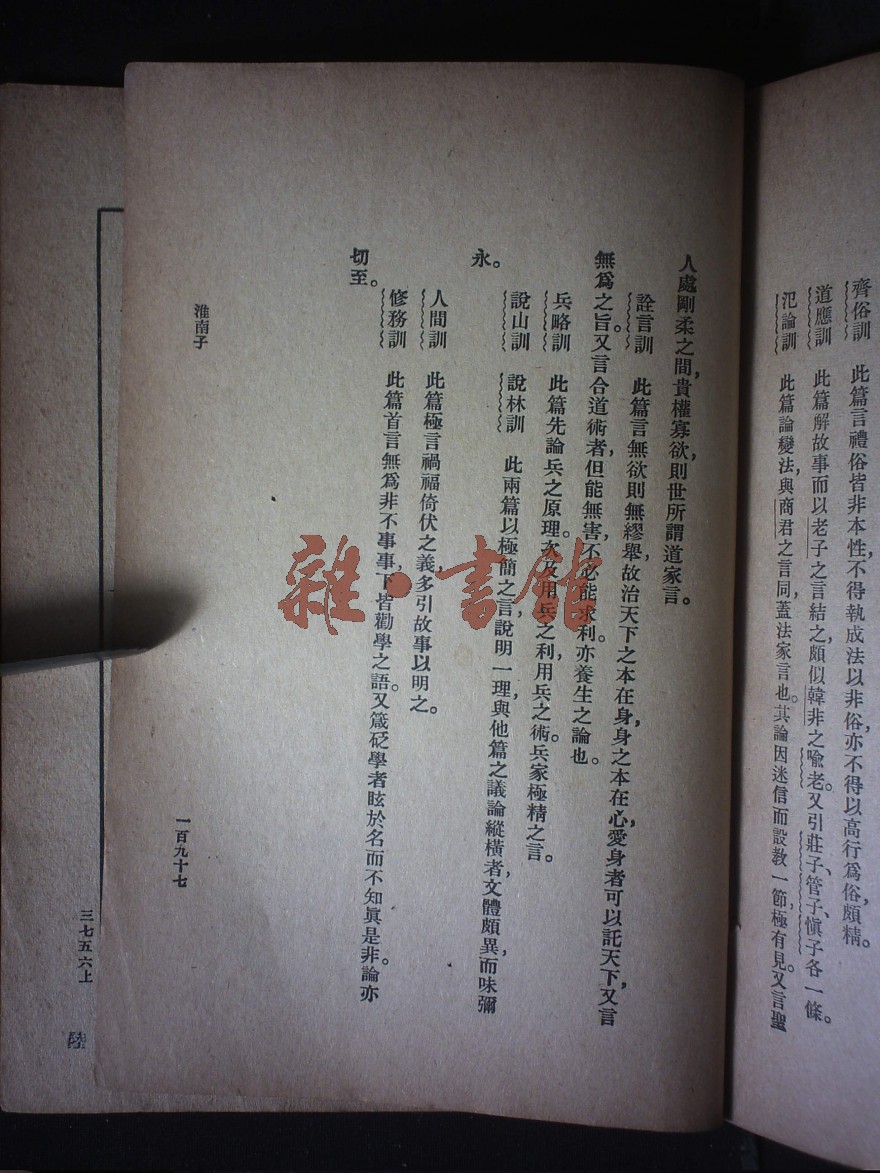 齊俗訓　此篇言禮俗皆非本性，不得執成法以非俗，亦不得以高行爲俗，頗精。
道應訓　此篇解故事而以老子之言結之，頗似韓非之喻老。又引莊子、管子、愼子各一條。
氾論訓　此篇論變法，與商君之言同，蓋法家言也。其論因迷信而設敎一節，極有見。又言聖
人處剛柔之間，貴權寡欲，則世所謂道家言。
詮言訓　此篇言無欲則無繆舉，故治天下之本在身，身之本在心，愛身者可以託天下，又言
無爲之旨。又言合道術者，但能無害，不必能求利。亦養生之論也。
兵略訓　此篇先論兵之原理，次及用兵之利，用兵之術。兵家極精之言。
說山訓　說林訓　此兩篇以極簡之言，說明一理，與他篇之議論縱橫者，文體頗異，而味彌
永。
人間訓　此篇極言禍福倚伏之義，多引故事以明之。
修務訓　此篇首言無爲非不事事，下皆勸學之語。又箴砭學者眩於名而不知眞是非。論亦
切至。
淮南子
一百九十七
三七五六上
陸
雜·書館